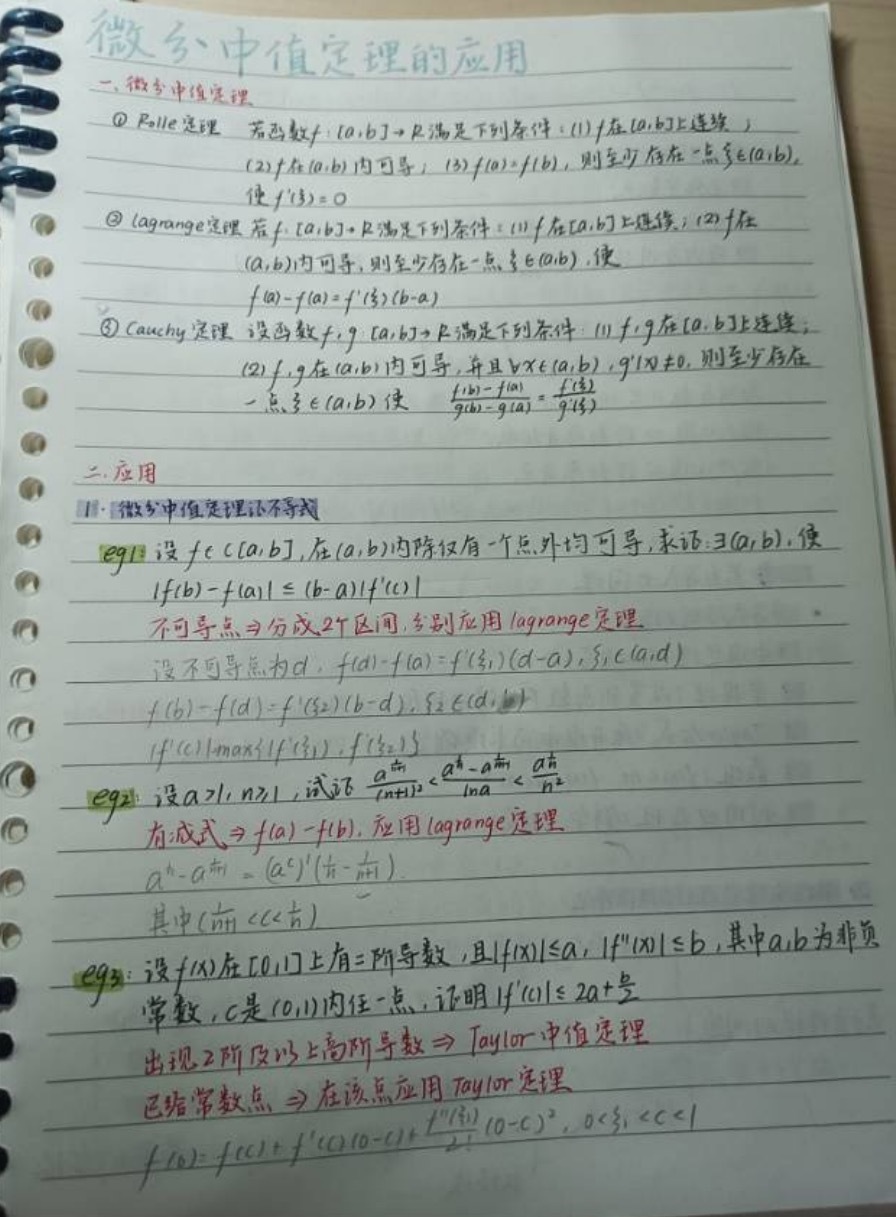 微分中值定理的应用
一、微分中值定理
① Rolle定理 若函数f:[a,b]→R满足下列条件:(1) f在[a,b]上连续;
(2) f在(a,b)内可导; (3) f(a)=f(b), 则至少存在一点ξ∈(a,b),
使f'(ξ)=0
② lagrange定理 若f:[a,b]→R满足下列条件:(1) f在[a,b]上连续;(2) f在
(a,b)内可导,则至少存在一点ξ∈(a,b),使
f(a)-f(a)=f'(ξ)(b-a)
③ Cauchy定理 设函数f,g:[a,b]→R满足下列条件:(1) f,g在[a,b]上连续;
(2) f,g在(a,b)内可导,并且∀x∈(a,b),g'(x)≠0,则至少存在
一点ξ∈(a,b)使 (f(b)-f(a))/(g(b)-g(a)) = f'(ξ)/g'(ξ)
二.应用
1.微分中值定理证不等式
eg1:设f∈C[a,b],在(a,b)内除仅有一个点外均可导,求证:∃(a,b),使
|f(b)-f(a)|≤(b-a)|f'(c)|
不可导点⇒分成2个区间,分别应用lagrange定理
设不可导点为d, f(d)-f(a)=f'(ξ₁)(d-a), ξ₁∈(a,d)
f(b)-f(d)=f'(ξ₂)(b-d), ξ₂∈(d,b)
|f'(c)|=max{|f'(ξ₁), f'(ξ₂)}
eg2:设a>1,n≥1,试证 a^(1/(n+1))/(n+1)² < (a^(1/n)-a^(1/(n+1)))/lna < a^(1/n)/n²
有减式⇒f(a)-f(b),应用lagrange定理
a^(1/n)-a^(1/(n+1)) = (a^c)'(1/n-1/(n+1)).
其中(1/(n+1)<c<1/n)
eg3:设f(x)在[0,1]上有二阶导数,且|f(x)|≤a,|f''(x)|≤b,其中a,b为非负
常数,c是(0,1)内任一点,证明|f'(c)|≤2a+b/2
出现2阶及以上高阶导数⇒Taylor中值定理
已给常数点⇒在该点应用Taylor定理
f(0)=f(c)+f'(c)(0-c)+f''(ξ₁)/2!(0-c)², 0<ξ₁<c<1